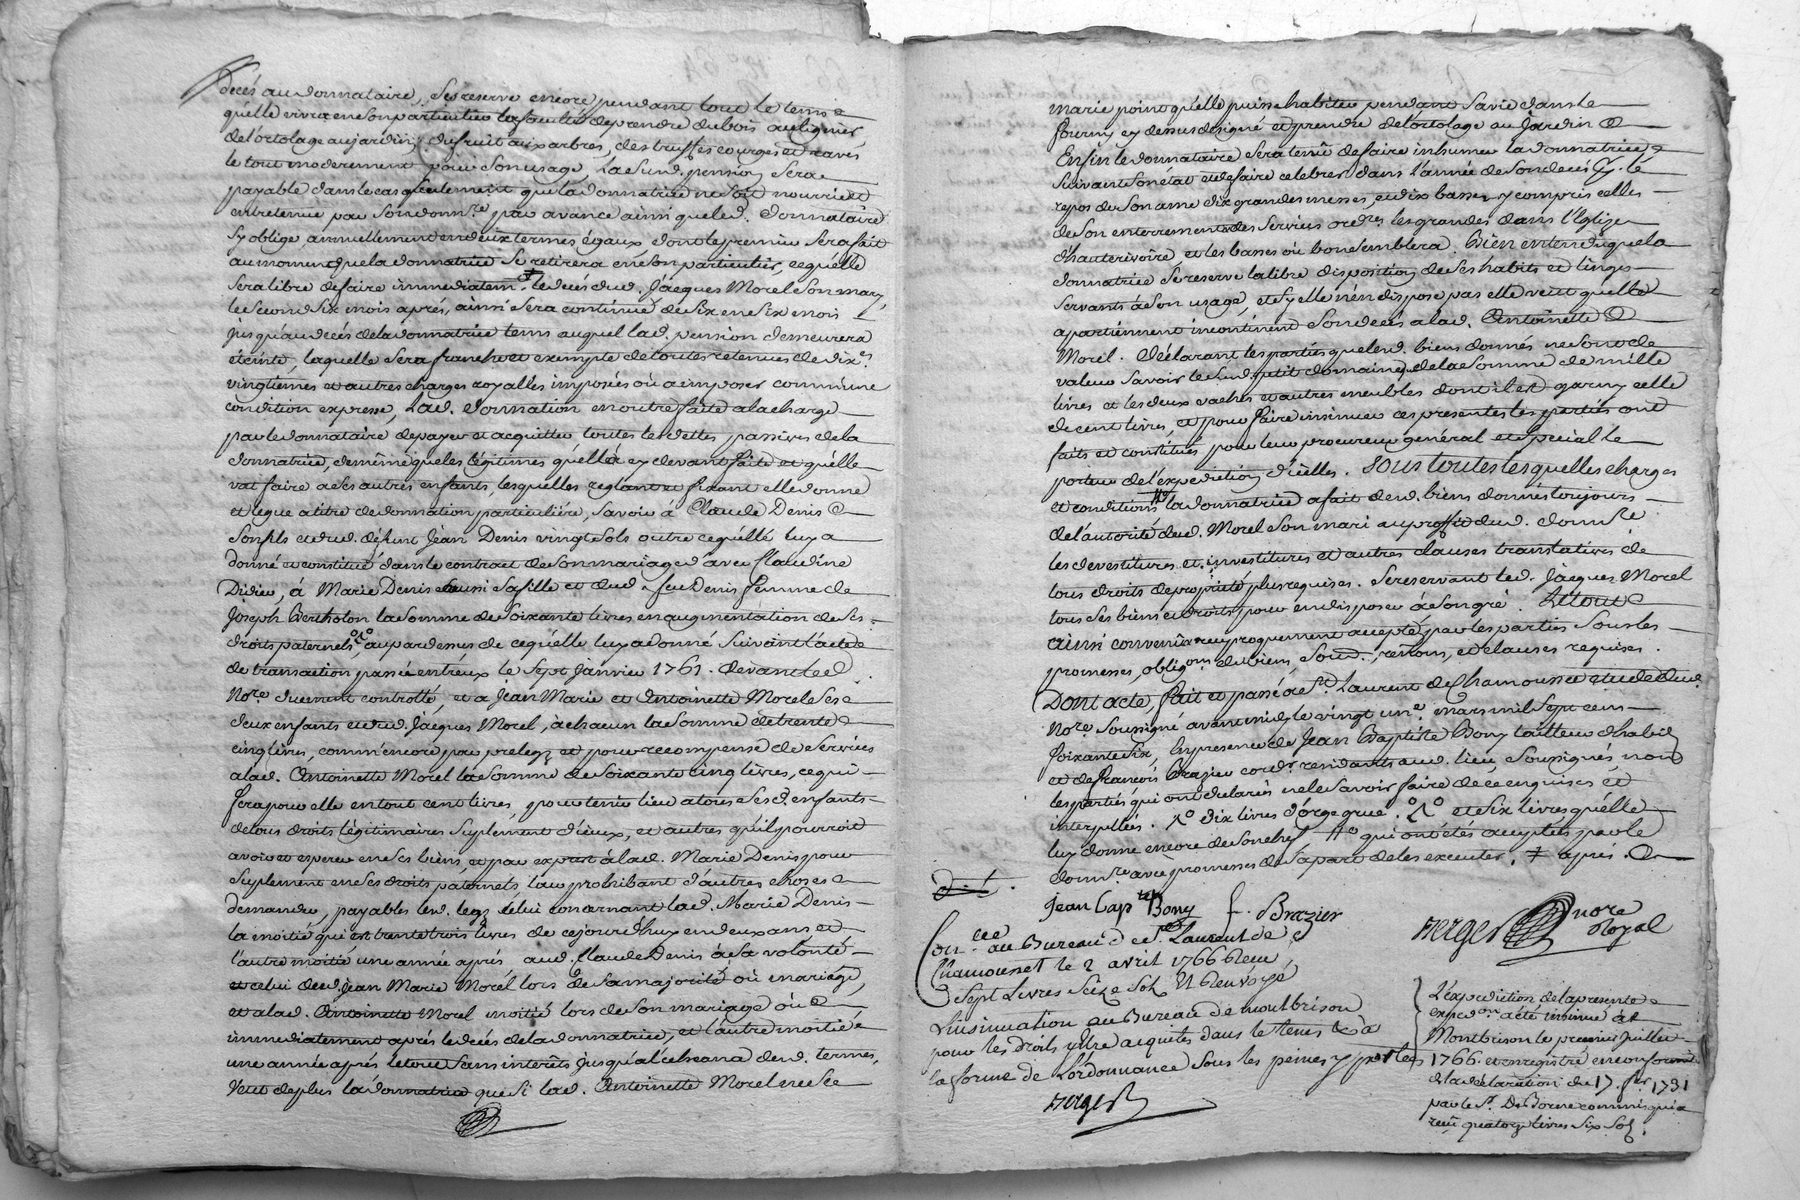 decés au donnataire, Se reserve encore pendant tout le tems
qu'elle vivra en son particulier la faculté de prendre du bois au ligner
de l'ortolage au jardin, du fruit aux arbres, des truffes courges et raves
le tout moderement pour son usage, La susd. pension Sera
payable dans le cas Seulement que la donnatrice ne soit nourrie et
entretenue par Son donn.re par avance ainsi que led. donnataire
S'y oblige, annuellement en deux termes égaux dont le premier Sera fait
au moment que la donnatrice Se retirera en Son particulier, ce qu'elle
Sera libre de faire immediatem.t ‡ le decés dud. Jacques Morel Son mary,
le Second Six mois après, ainsi Sera continué de Six en Six mois
jusqu'au decés de la donnatrice tems auquel lad. pension demeurera
éteinte, laquelle Sera franche et exempte de toutes retenues de dix.es
vingtiemes et autres charges royalles imposés où a imposer comme une
condition expresse, Lad. donnation en outre faite a la charge
par le donnataire de payer et acquitter toutes les dettes passives de la
donnatrice, de même que les légitimes qu'elle a cy devant faite et qu'elle
vat faire a Ses autres enfants, lesquelles reglant et fixant elle donne
et legue a titre de donnation particuliére, Savoir à Claude Denis
Son fils et dud. défunt Jean Denis vingt Sols outre ce qu'elle luy a
donné et constitué dans le contrat de Son mariage avec Claudine
Didier, à Marie Denis aussi Sa fille et dud. feu Denis femme de
Joseph Bertholon la Somme de Soixante livres en augmentation de Ses
droits paternels, au par dessus de ce qu'elle luy a donné Suivant l'acte
de transaction passé entr'eux le Sept Janvier 1761. devant led.
No.re duement controllé, et a Jean Marie et Antoinette Morel Ses
deux enfants et dud. Jacques Morel, à chacun la Somme de trente
cinq livres, comm'encore par preleg et pour recompense de Services
a lad. Antoinette Morel la Somme de Soixante cinq livres, ce qui
fera pour elle en tout cent livres, pour tenir lieu a tous Sesd. enfants
de tous droits légitimaires Suplement d'iceux, et autres qu'il pourroit
avoir et esperer en Ses biens, et par exprès à lad. Marie Denis pour
Suplement en Ses droits paternels leur prohibant d'autres choses
demander, payables lesd. legs celui concernant lad. Marie Denis
la moitié qui est trente trois livres de ce jourd'huy en deux ans et
l'autre moitié une année après aud. Claude Denis à Sa volonté
et celui dud. Jean Marie Morel lors de Sa majorité où mariage,
et a lad. Antoinette Morel moitié lors de Son mariage où
immediatement après le decés de la donnatrice, et l'autre moitié
une année après le tout Sans interêts jusqu'al'echeance desd. termes,
Veut de plus la donnatrice que Si lad. Antoinette Morel ne Se
marie point qu'elle puisse habiter pendant Sa vie dans le
fourny cy dessus designé et prendre de l'ortolage au Jardin
Enfin le donnataire Sera tenû de faire inhumer la donnatrice
Suivant Son état et de faire celebrer dans l'année de Son decés p. le
repos de Son ame dix grandes messes, et dix basses y compris celles
de Son enterrement et des Services ord.res les grandes dans l'Eglize
d'hauterivoire, et les basses où bon Semblera. Bien entendu que la
donnatrice Se reserve la libre disposition de Ses habits et linges
Servants à Son usage, et Sy elle n'en dispose pas elle veut qu'elle
apartiennent incontinent Son decés a lad. Antoinette
Morel. Déclarant les parties que lesd. biens donnés ne Sont de
valeur Savoir le Susd. petit domaine de la Somme de mille
livres et les deux vaches et autres meubles dont il est garny celle
de cent livres, et pour faire insinuer ces presentes les parties ont
faits et constitués pour leur procureur general et Special le
porteur de l'expedition d'icelles. Sous toutes lesquelles charges
et conditions la donnatrice a fait desd. biens donnés toujours
de l'autorité dud. Morel Son mari au proffit dud. donn.re
les devestitures et investitures et autres clauses translatives de
tous droits de proprieté plus requises. Se reservant led. Jacques Morel
tous Ses biens et droits pour en disposer à Son gré. Le tout
ainsi convenû et reciproquement accepté par les parties Sous les
promesses, oblig.ons de biens, Soum. , renons, et clauses requises.
Dont acte, fait et passé à S.t Laurent de Chamousset etude dud.
No.re Soussigné avant midy le vingt un.e mars mil Sept cens
Soixante Six, En presence de Jean Baptiste Bony tailleur d'habits
et de François Brazier cord.r residants aud. lieu, Soussignés, non
les parties qui ont declarés ne le Savoir faire de ce enquises et
interpellés. dix livres d'orge grué. et Six livres qu'elle
luy donne encore de Son chef qui ont étés acceptées par le
donn.re avec promesses de Sa part de les executer, ‡ après.
Jean Bap.te Bony f. Brazier
Verger no.re Royal
Con.llé au Bureau de S.t Laurent de
Chamousset le 2 avril 1766 Reçu
Sept Livres Seize Sols Et Renvoyé
L'insinuation au Bureau de Montbrison
pour les droits y être acquites dans le tems &
la forme de L'ordonnance Sous les peines y portées
Verger
L'expedition de la presente
acte insinué à
Montbrison le premier juillet
1766. et enregistré en conformité
de la declaration du 17. f.er 1731
par le S.r De Borne commis qui a
reçû quatorze livres Six Sols.